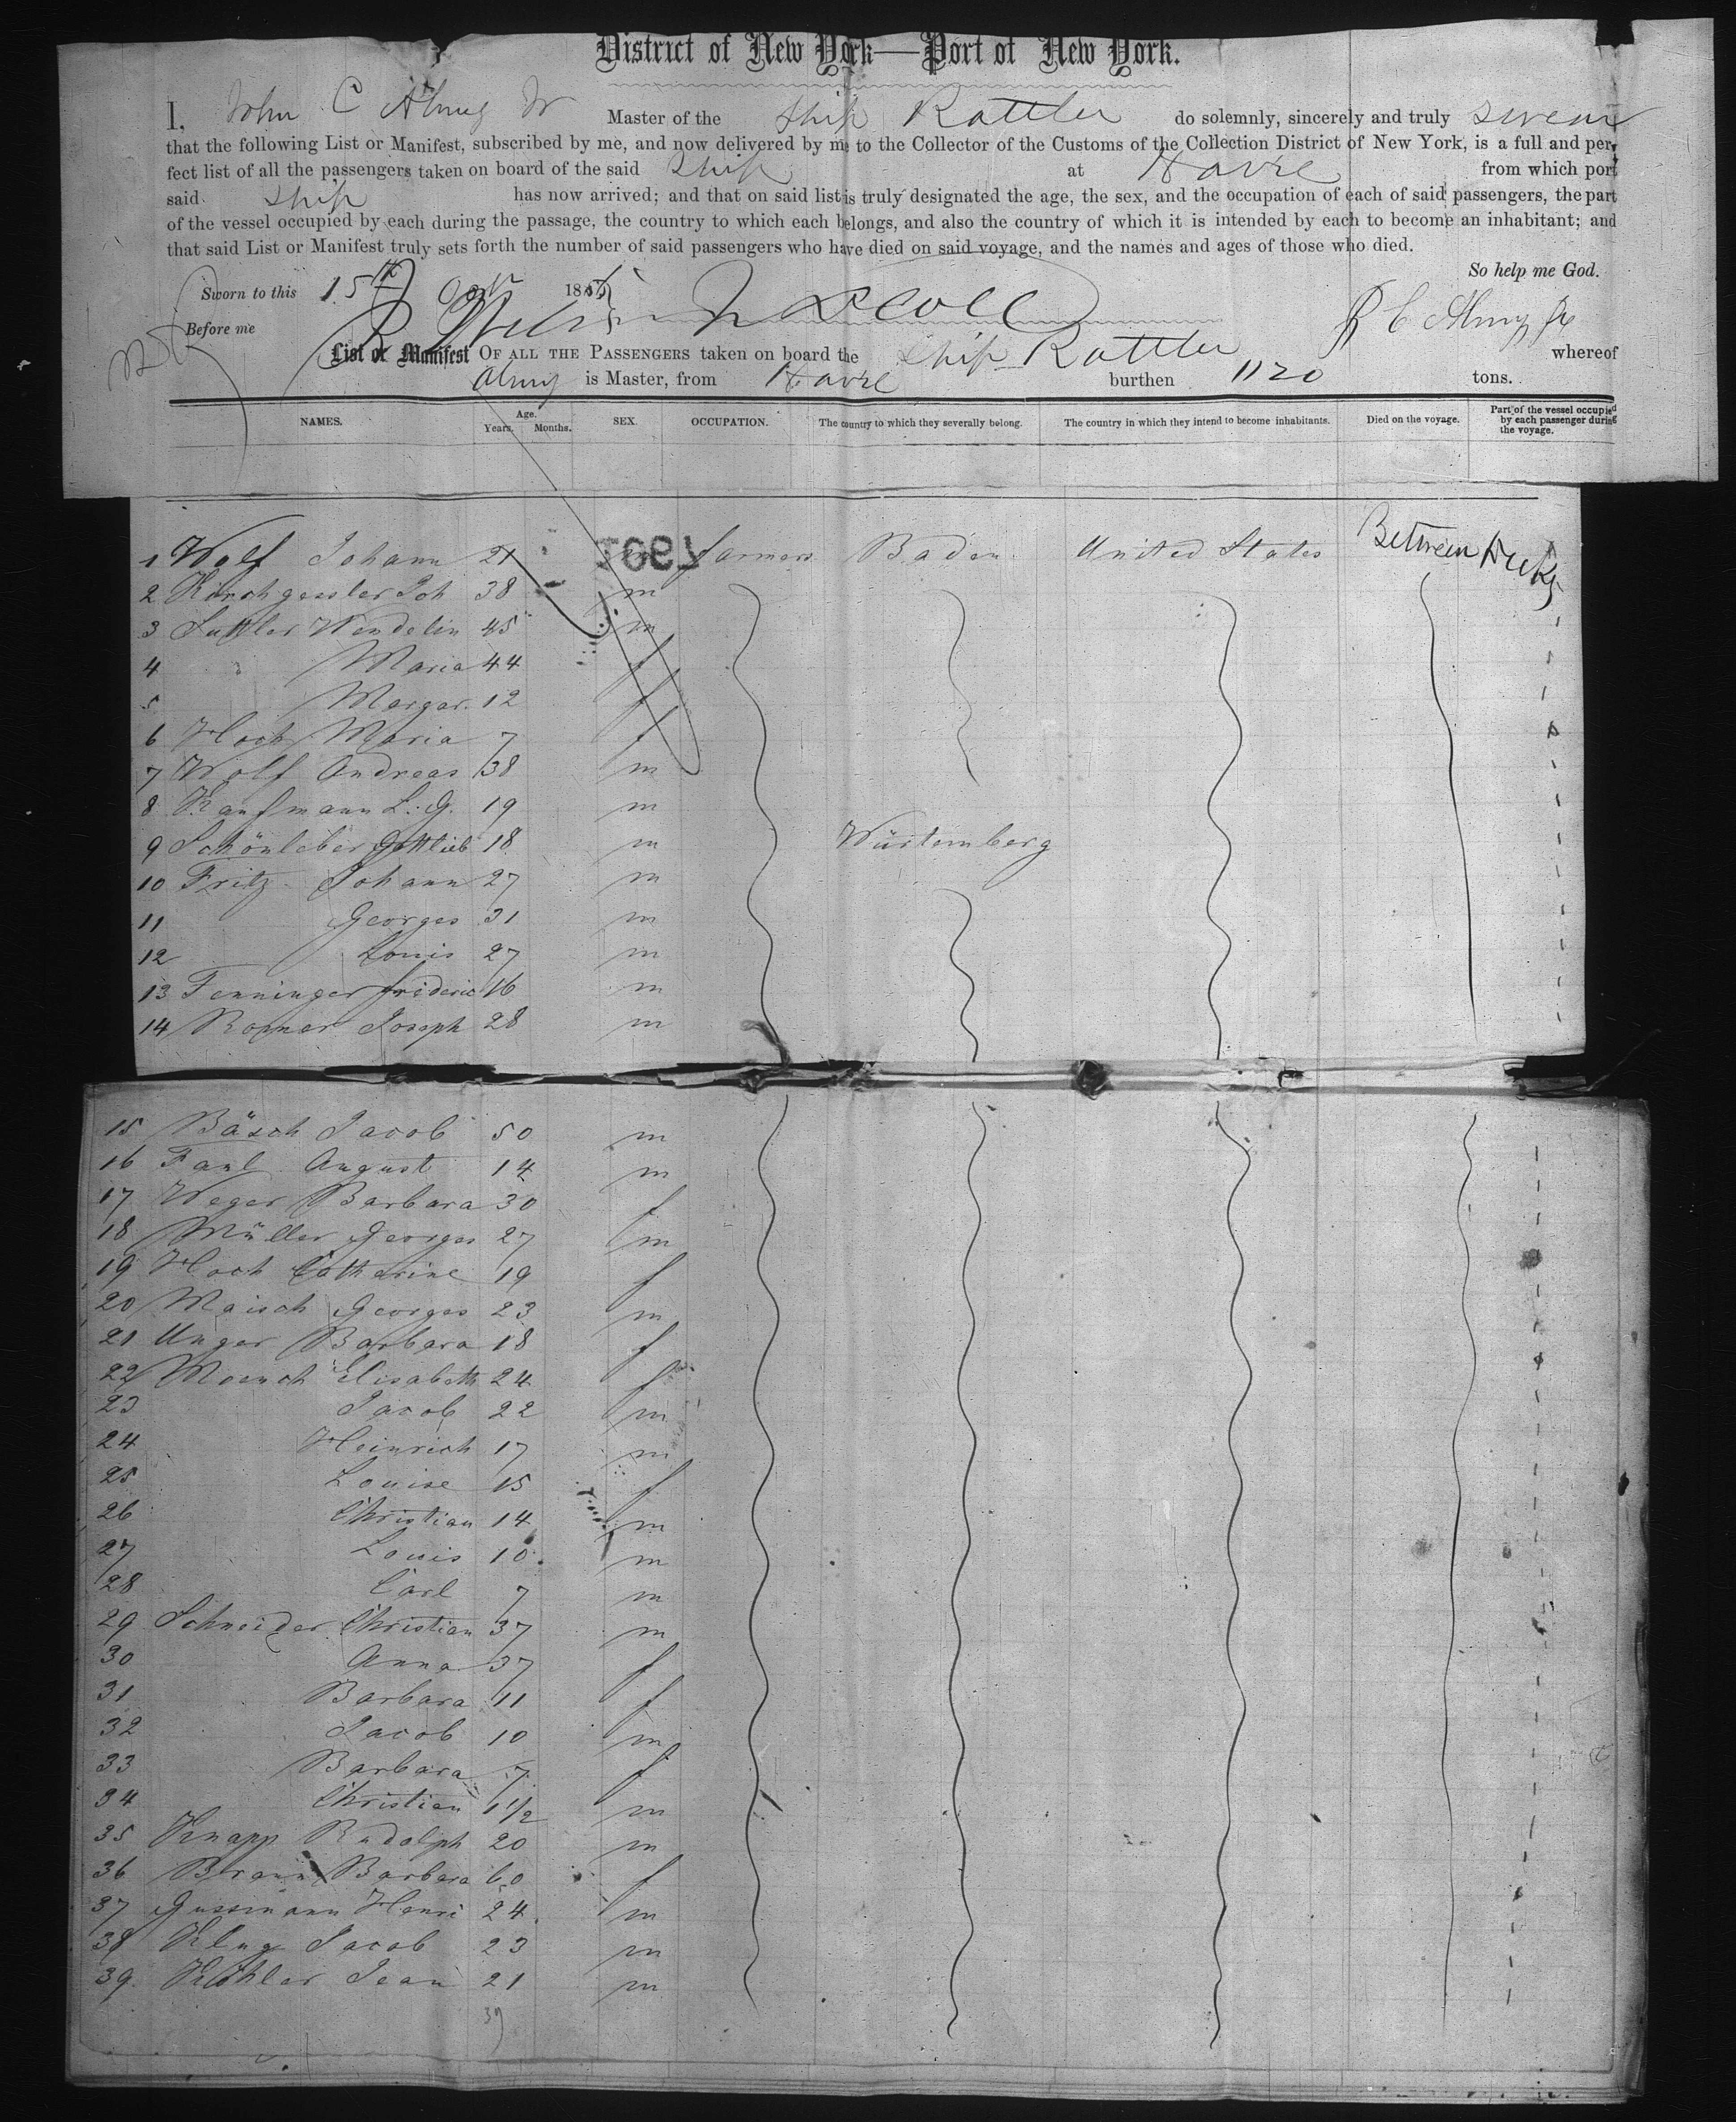 District of New York—Port of New York.
I, John C Almy Jr Master of the Ship Rattler do solemnly, sincerely and truly swear
that the following List or Manifest, subscribed by me, and now delivered by me to the Collector of the Customs of the Collection District of New York, is a full and per-
fect list of all the passengers taken on board of the said Ship at Havre from which port
said Ship has now arrived; and that on said list is truly designated the age, the sex, and the occupation of each of said passengers, the part
of the vessel occupied by each during the passage, the country to which each belongs, and also the country of which it is intended by each to become an inhabitant; and
that said List or Manifest truly sets forth the number of said passengers who have died on said voyage, and the names and ages of those who died.
So help me God.
Sworn to this 15th 18
Before me J C Almy Jr
List or Manifest OF ALL THE PASSENGERS taken on board the Ship Rattler whereof
Almy is Master, from Havre burthen 1120 tons.
NAMES. Age. Years. Months. SEX. OCCUPATION. The country to which they severally belong. The country in which they intend to become inhabitants. Died on the voyage. Part of the vessel occupied by each passenger during the voyage.
1 Wolf Johann 21 m farmers Baden United States Between Decks
2 Kirchgessler Joh 38 m
3 Suttler Wendelin 45 m
4 Maria 44 f
5 Margar. 12 f
6 Hoch Maria 7 f
7 Wolf Andreas 38 m
8 Kaufmann L. G. 19 m
9 Schönleber Gottlieb 18 m Würtemberg
10 Fritz Johann 27 m
11 Georges 31 m
12 Louis 27 m
13 Fenninger frideric 16 m
14 Romer Joseph 28 m
15 Bäsch Jacob 50 m
16 Faul August 14 m
17 Weger Barbara 30 f
18 Müller Georges 27 m
19 Hoch Catharine 19 f
20 Maisch Georges 23 m
21 Unger Barbara 18 f
22 Moench Elisabeth 24 f
23 Jacob 22 m
24 Heinrich 17 m
25 Louise 15 f
26 Christian 14 m
27 Louis 10 m
28 Carl 7 m
29 Schneider Christian 37 m
30 Anna 37 f
31 Barbara 11 f
32 Jacob 10 m
33 Barbara 7 f
34 Christian 1 1/2 m
35 Knapp Rudolph 20 m
36 Braun Barbara 60 f
37 Gussmann Henri 24 m
38 Klug Jacob 23 m
39 Köhler Jean 21 m
39